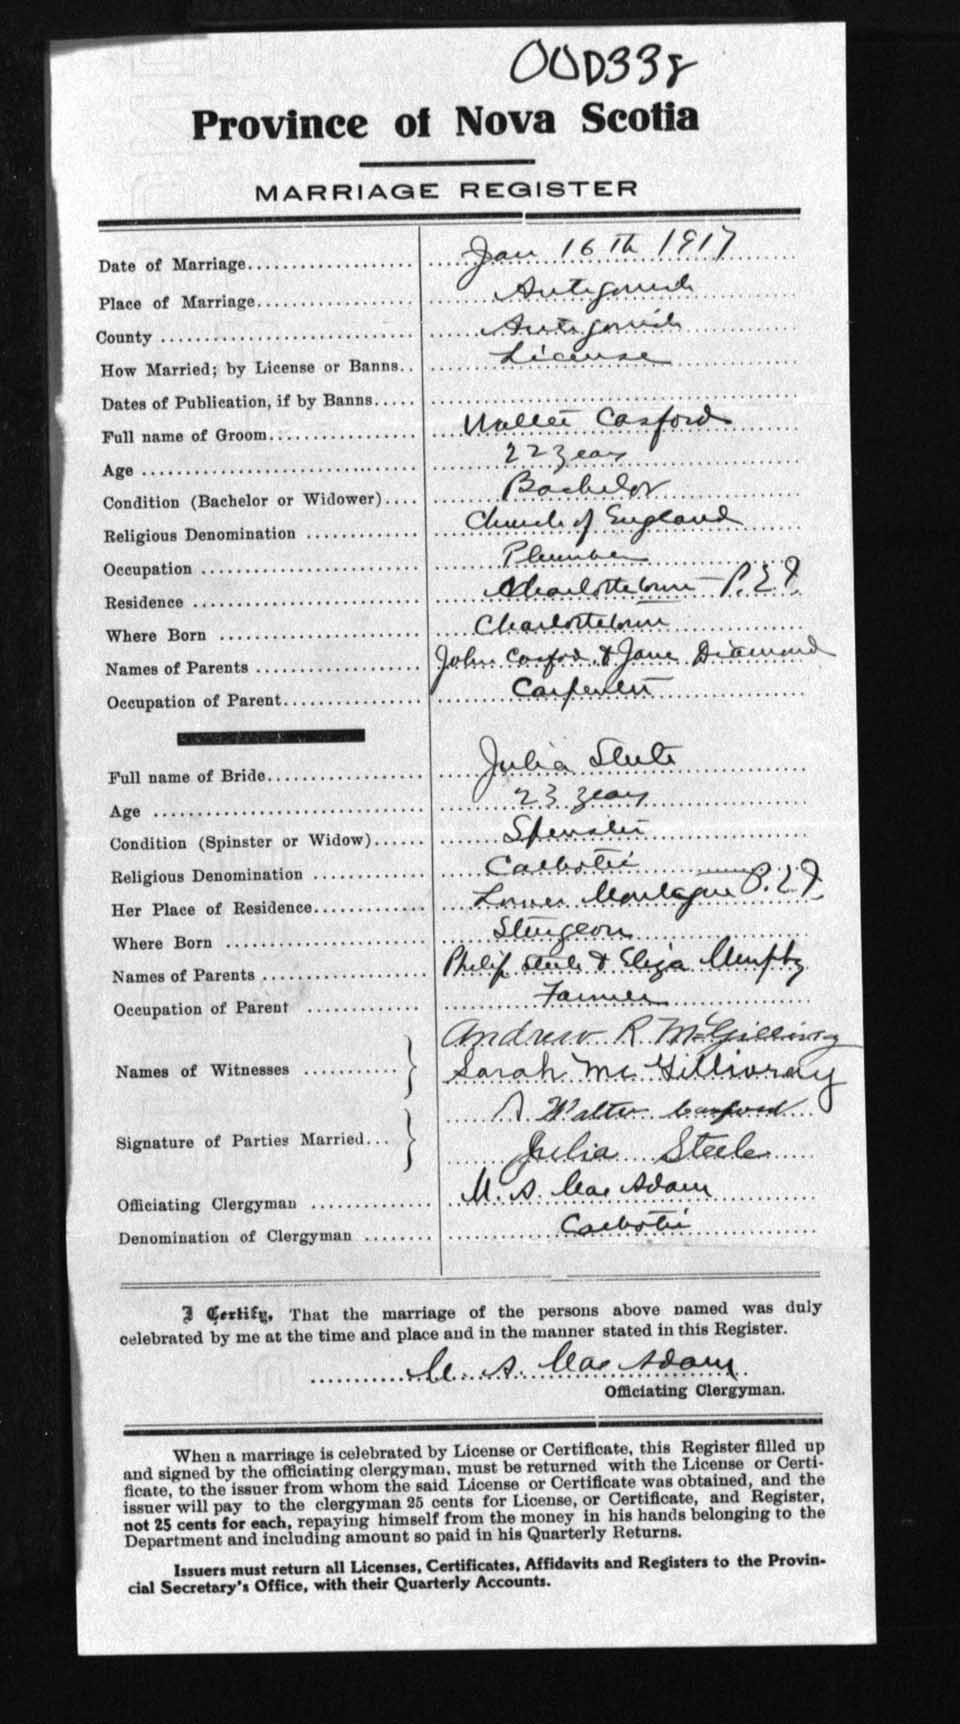 00D338
Province of Nova Scotia
MARRIAGE REGISTER
Date of Marriage Jan 16th 1917
Place of Marriage Antigonish
County Antigonish
How Married; by License or Banns License
Dates of Publication, if by Banns
Full name of Groom Walter Cosford
Age 22 years
Condition (Bachelor or Widower) Bachelor
Religious Denomination Church of England
Occupation Plumber
Residence Charlottetown P.E.I.
Where Born Charlottetown
Names of Parents John Cosford & Jane Diamond
Occupation of Parent Carpenter
Full name of Bride Julia Steele
Age 23 years
Condition (Spinster or Widow) Spinster
Religious Denomination Catholic
Her Place of Residence Lower Montague P.E.I.
Where Born Sturgeon
Names of Parents Philip Steele & Eliza Murphy
Occupation of Parent Farmer
Names of Witnesses Andrew R. McGillivray
Sarah Mc Gillivray
Walter Cosford
Signature of Parties Married Julia Steele
Officiating Clergyman M. A. MacAdam
Denomination of Clergyman Catholic
I Certify, That the marriage of the persons above named was duly
celebrated by me at the time and place and in the manner stated in this Register.
M. A. MacAdam
Officiating Clergyman.
When a marriage is celebrated by License or Certificate, this Register filled up
and signed by the officiating clergyman, must be returned with the License or Certi-
ficate, to the issuer from whom the said License or Certificate was obtained, and the
issuer will pay to the clergyman 25 cents for License, or Certificate, and Register,
not 25 cents for each, repaying himself from the money in his hands belonging to the
Department and including amount so paid in his Quarterly Returns.
Issuers must return all Licenses, Certificates, Affidavits and Registers to the Provin-
cial Secretary's Office, with their Quarterly Accounts.